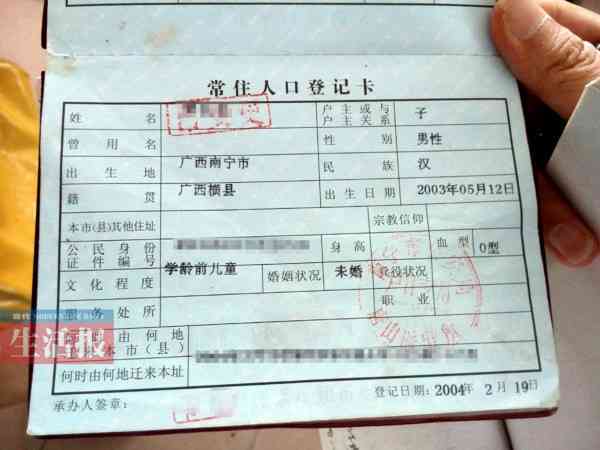 常住人口登记卡
姓名 户主或与户主关系 子
曾用名 性别 男性
出生地 广西南宁市 民族 汉
籍贯 广西横县 出生日期 2003年05月12日
本市(县)其他住址 宗教信仰
公民身份证件编号 身高 血型 O型
文化程度 学龄前儿童 婚姻状况 未婚 兵役状况
服务处所 职业
由何地 本市(县)
何时由何地迁来本址
承办人签章: 登记日期:2004年2月19日
生活报